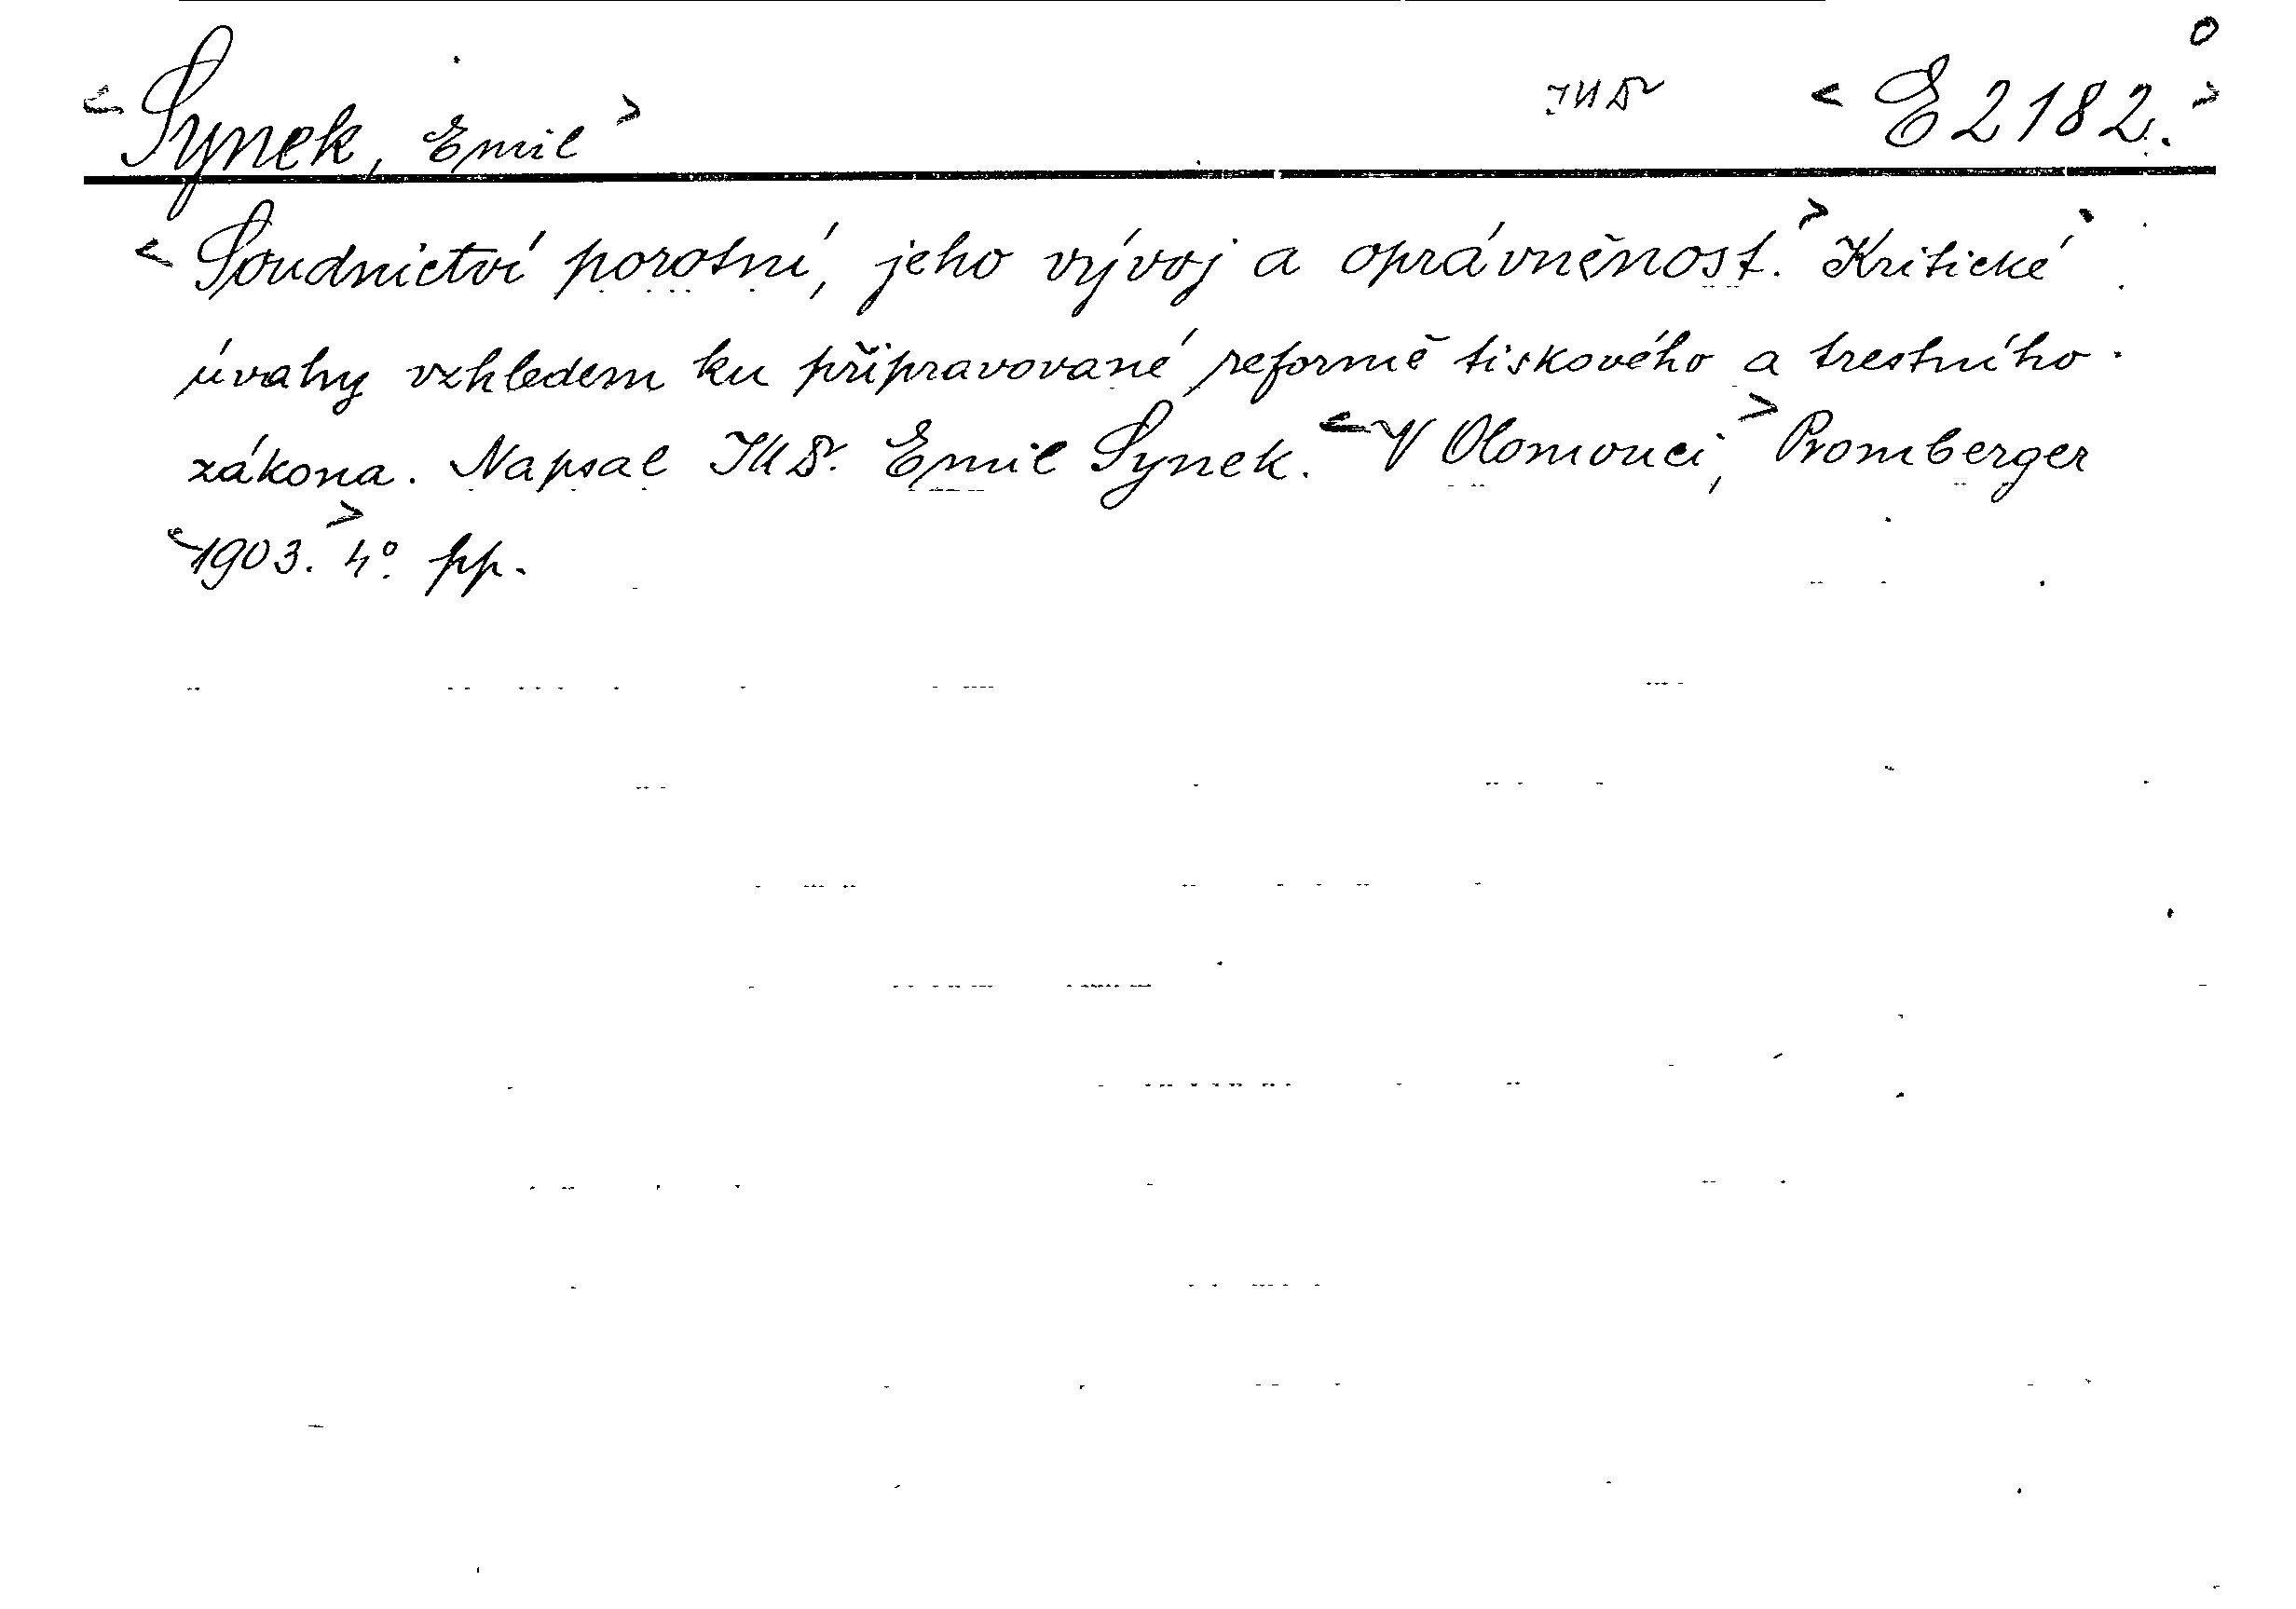 <Synek, Emil> JUDr <E2182.>
<Soudnictví porotní, jeho vývoj a oprávněnost.> Kritické
úvahy vzhledem ku připravované reformě tiskového a trestního
zákona. Napsal JUDr. Emil Synek. <V Olomouci,> Promberger
<1903.> 4° pp.